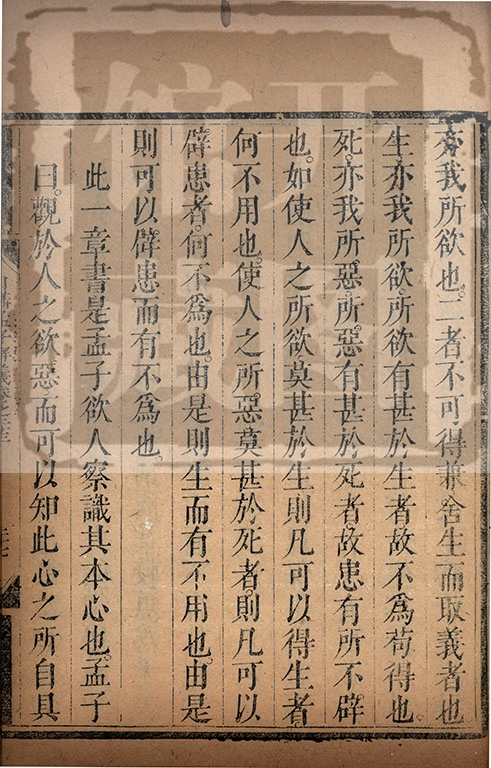 亦我所欲也。二者不可得兼舍生而取義者也
生亦我所欲所欲有甚於生者故不為苟得也。
死。亦我所。惡所。惡有甚於死者。故患有所不。辟
也。如使人之所欲莫甚於生則凡可以得生者
何不用也。使人之所。惡莫甚於死者。則凡可以
辟患者。何不爲也。由是則生而有不用也。由是
則可以辟患而有不爲也。
此一章書是孟子欲人察識其本心也。孟子
曰。觀於人之欲惡而可以知此心之所自具